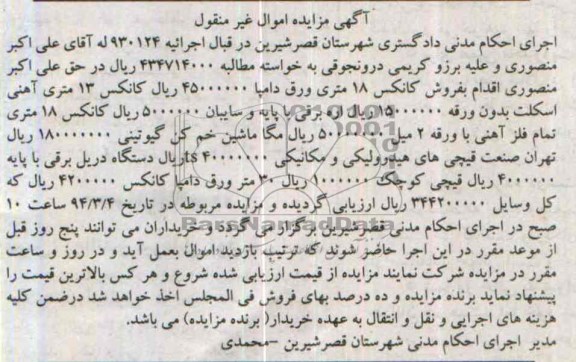 آگهی مزایده اموال غیر منقول
اجرای احکام مدنی دادگستری شهرستان قصرشیرین در قبال اجرائیه ۹۳۰۱۲۴ له آقای علی اکبر
منصوری و علیه برزو کریمی درونجوقی به خواسته مطالبه ۴۳۴۷۱۴۰۰۰ ریال در حق علی اکبر
منصوری اقدام بفروش کانکس ۱۸ متری ورق دامپا ۴۵۰۰۰۰۰۰ ریال کانکس ۱۳ متری آهنی
اسکلت بدون ورقه ۱۵۰۰۰۰۰۰ ریال اره برقی با پایه و سایبان ۵۰۰۰۰۰۰ ریال کانکس ۱۸ متری
تمام فلز آهنی با ورقه ۲ میل ریال مگا ماشین خم کن گیوتینی ۱۸۰۰۰۰۰۰۰ ریال
تهران صنعت قیچی های هیدرولیکی و مکانیکی ۴۰۰۰۰۰۰۰ ریال دستگاه دریل برقی با پایه
۴۰۰۰۰۰۰ ریال قیچی کوچک ۱۰۰۰۰۰۰ ریال ۳۰ متر ورق دامپا کانکس ۴۲۰۰۰۰۰ ریال که
کل وسایل ۳۴۴۲۰۰۰۰۰ ریال ارزیابی گردیده و مزایده مربوطه در تاریخ ۹۴/۳/۴ ساعت ۱۰
صبح در اجرای احکام مدنی قصرشیرین برگزار می گردد و خریداران می توانند پنج روز قبل
از موعد مقرر در این اجرا حاضر شوند که ترتیب بازدید اموال بعمل آید و در روز و ساعت
مقرر در مزایده شرکت نمایند مزایده از قیمت ارزیابی شده شروع و هر کس بالاترین قیمت را
پیشنهاد نماید برنده مزایده و ده درصد بهای فروش فی المجلس اخذ خواهد شد درضمن کلیه
هزینه های اجرایی و نقل و انتقال به عهده خریدار( برنده مزایده) می باشد.
مدیر اجرای احکام مدنی شهرستان قصرشیرین –محمدی
ParsNamadData